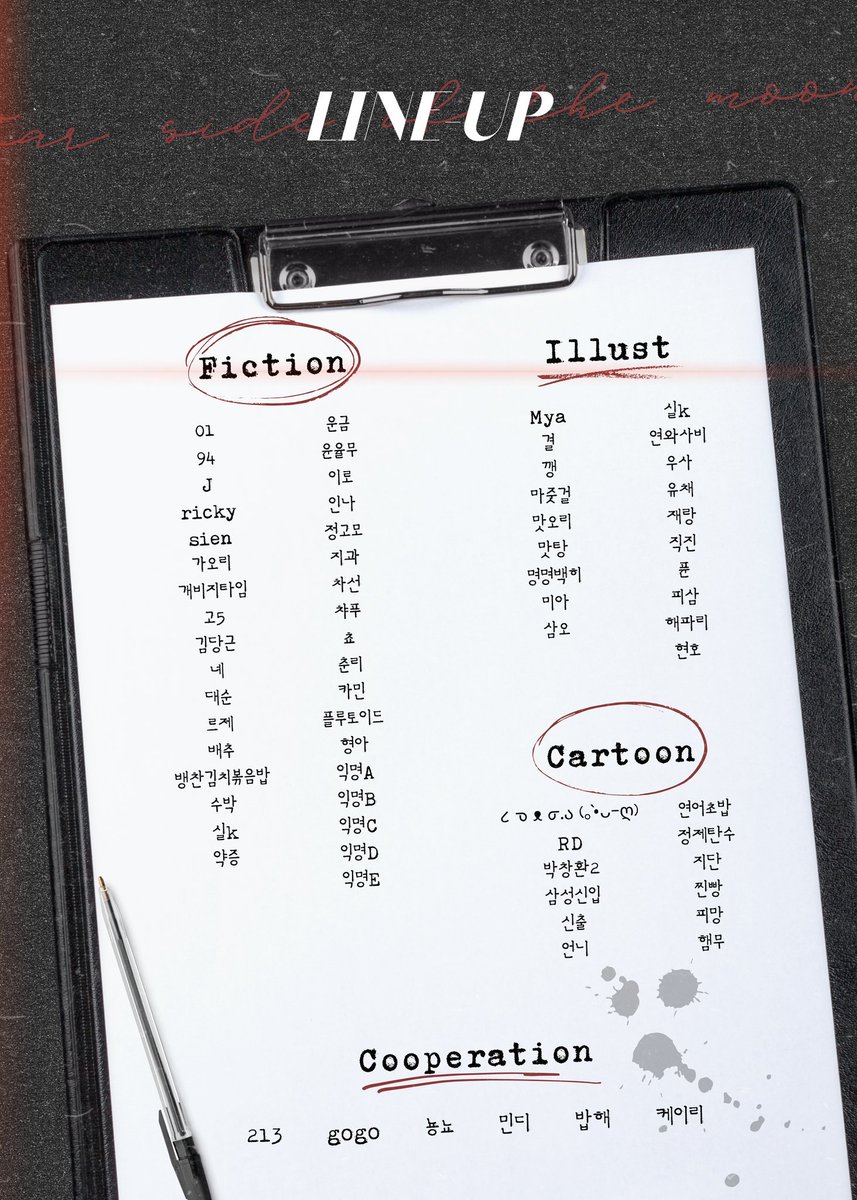 far side of the moon
LINE-UP
Fiction
01
94
J
ricky
sien
가오리
개비지타임
고5
김당근
네
대순
르제
배추
뱅찬김치볶음밥
수박
실k
약증
운금
윤율무
이로
인나
정고모
지과
차선
챠푸
쵸
춘리
카민
플루토이드
형아
익명A
익명B
익명C
익명D
익명E
Illust
Mya
결
깽
마줏걸
맛오리
맛탕
명명백히
미아
삼오
실k
연와사비
우사
유채
재랑
직진
푼
피삼
해파리
현호
Cartoon
RD
박창환2
삼성신입
신출
언니
연어초밥
정제탄수
지단
찐빵
피망
햄무
Cooperation
213 gogo 뇽뇨 민디 밥해 케이리